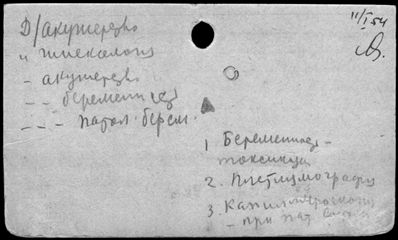 11/I 54
Д/акушерство
" гинекология
- акушерство
- - беременность
- - - патол. берем.
1 Беременность -
токсикозы
2. Плетизмография
3. Капилляроскопия
- при пат.